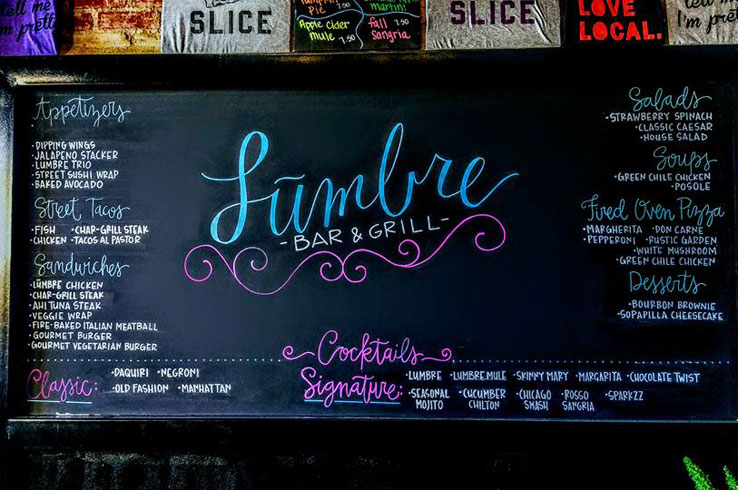 tell me
I'm pretty
SLICE
pumpkin
pie
Apple cider
mule 7.50
martini
7.50
fall
sangria
SLICE
LOVE
LOCAL.
tell me
I'm pretty
Appetizers
·DIPPING WINGS
·JALAPENO STACKER
·LUMBRE TRIO
·STREET SUSHI WRAP
·BAKED AVOCADO
Street Tacos
·FISH ·CHAR-GRILL STEAK
·CHICKEN ·TACOS AL PASTOR
Sandwiches
·LŪMBRE CHICKEN
·CHAR-GRILL STEAK
·AHI TUNA STEAK
·VEGGIE WRAP
·FIRE-BAKED ITALIAN MEATBALL
·GOURMET BURGER
·GOURMET VEGETARIAN BURGER
Lūmbre
-BAR & GRILL-
Salads
·STRAWBERRY SPINACH
·CLASSIC CAESAR
·HOUSE SALAD
Soups
·GREEN CHILE CHICKEN
·POSOLE
Fired Oven Pizza
·MARGHERITA ·DON CARNE
·PEPPERONI ·RUSTIC GARDEN
·WHITE MUSHROOM
·GREEN CHILE CHICKEN
Desserts
·BOURBON BROWNIE
·SOPAPILLA CHEESECAKE
Cocktails
Classic:
·DAQUIRI ·NEGRONI
·OLD FASHION ·MANHATTAN
Signature:
·LUMBRE ·LUMBRE MULE ·SKINNY MARY ·MARGARITA ·CHOCOLATE TWIST
·SEASONAL MOJITO ·CUCUMBER CHILTON ·CHICAGO SMASH ·ROSSO SANGRIA ·SPARKZZ